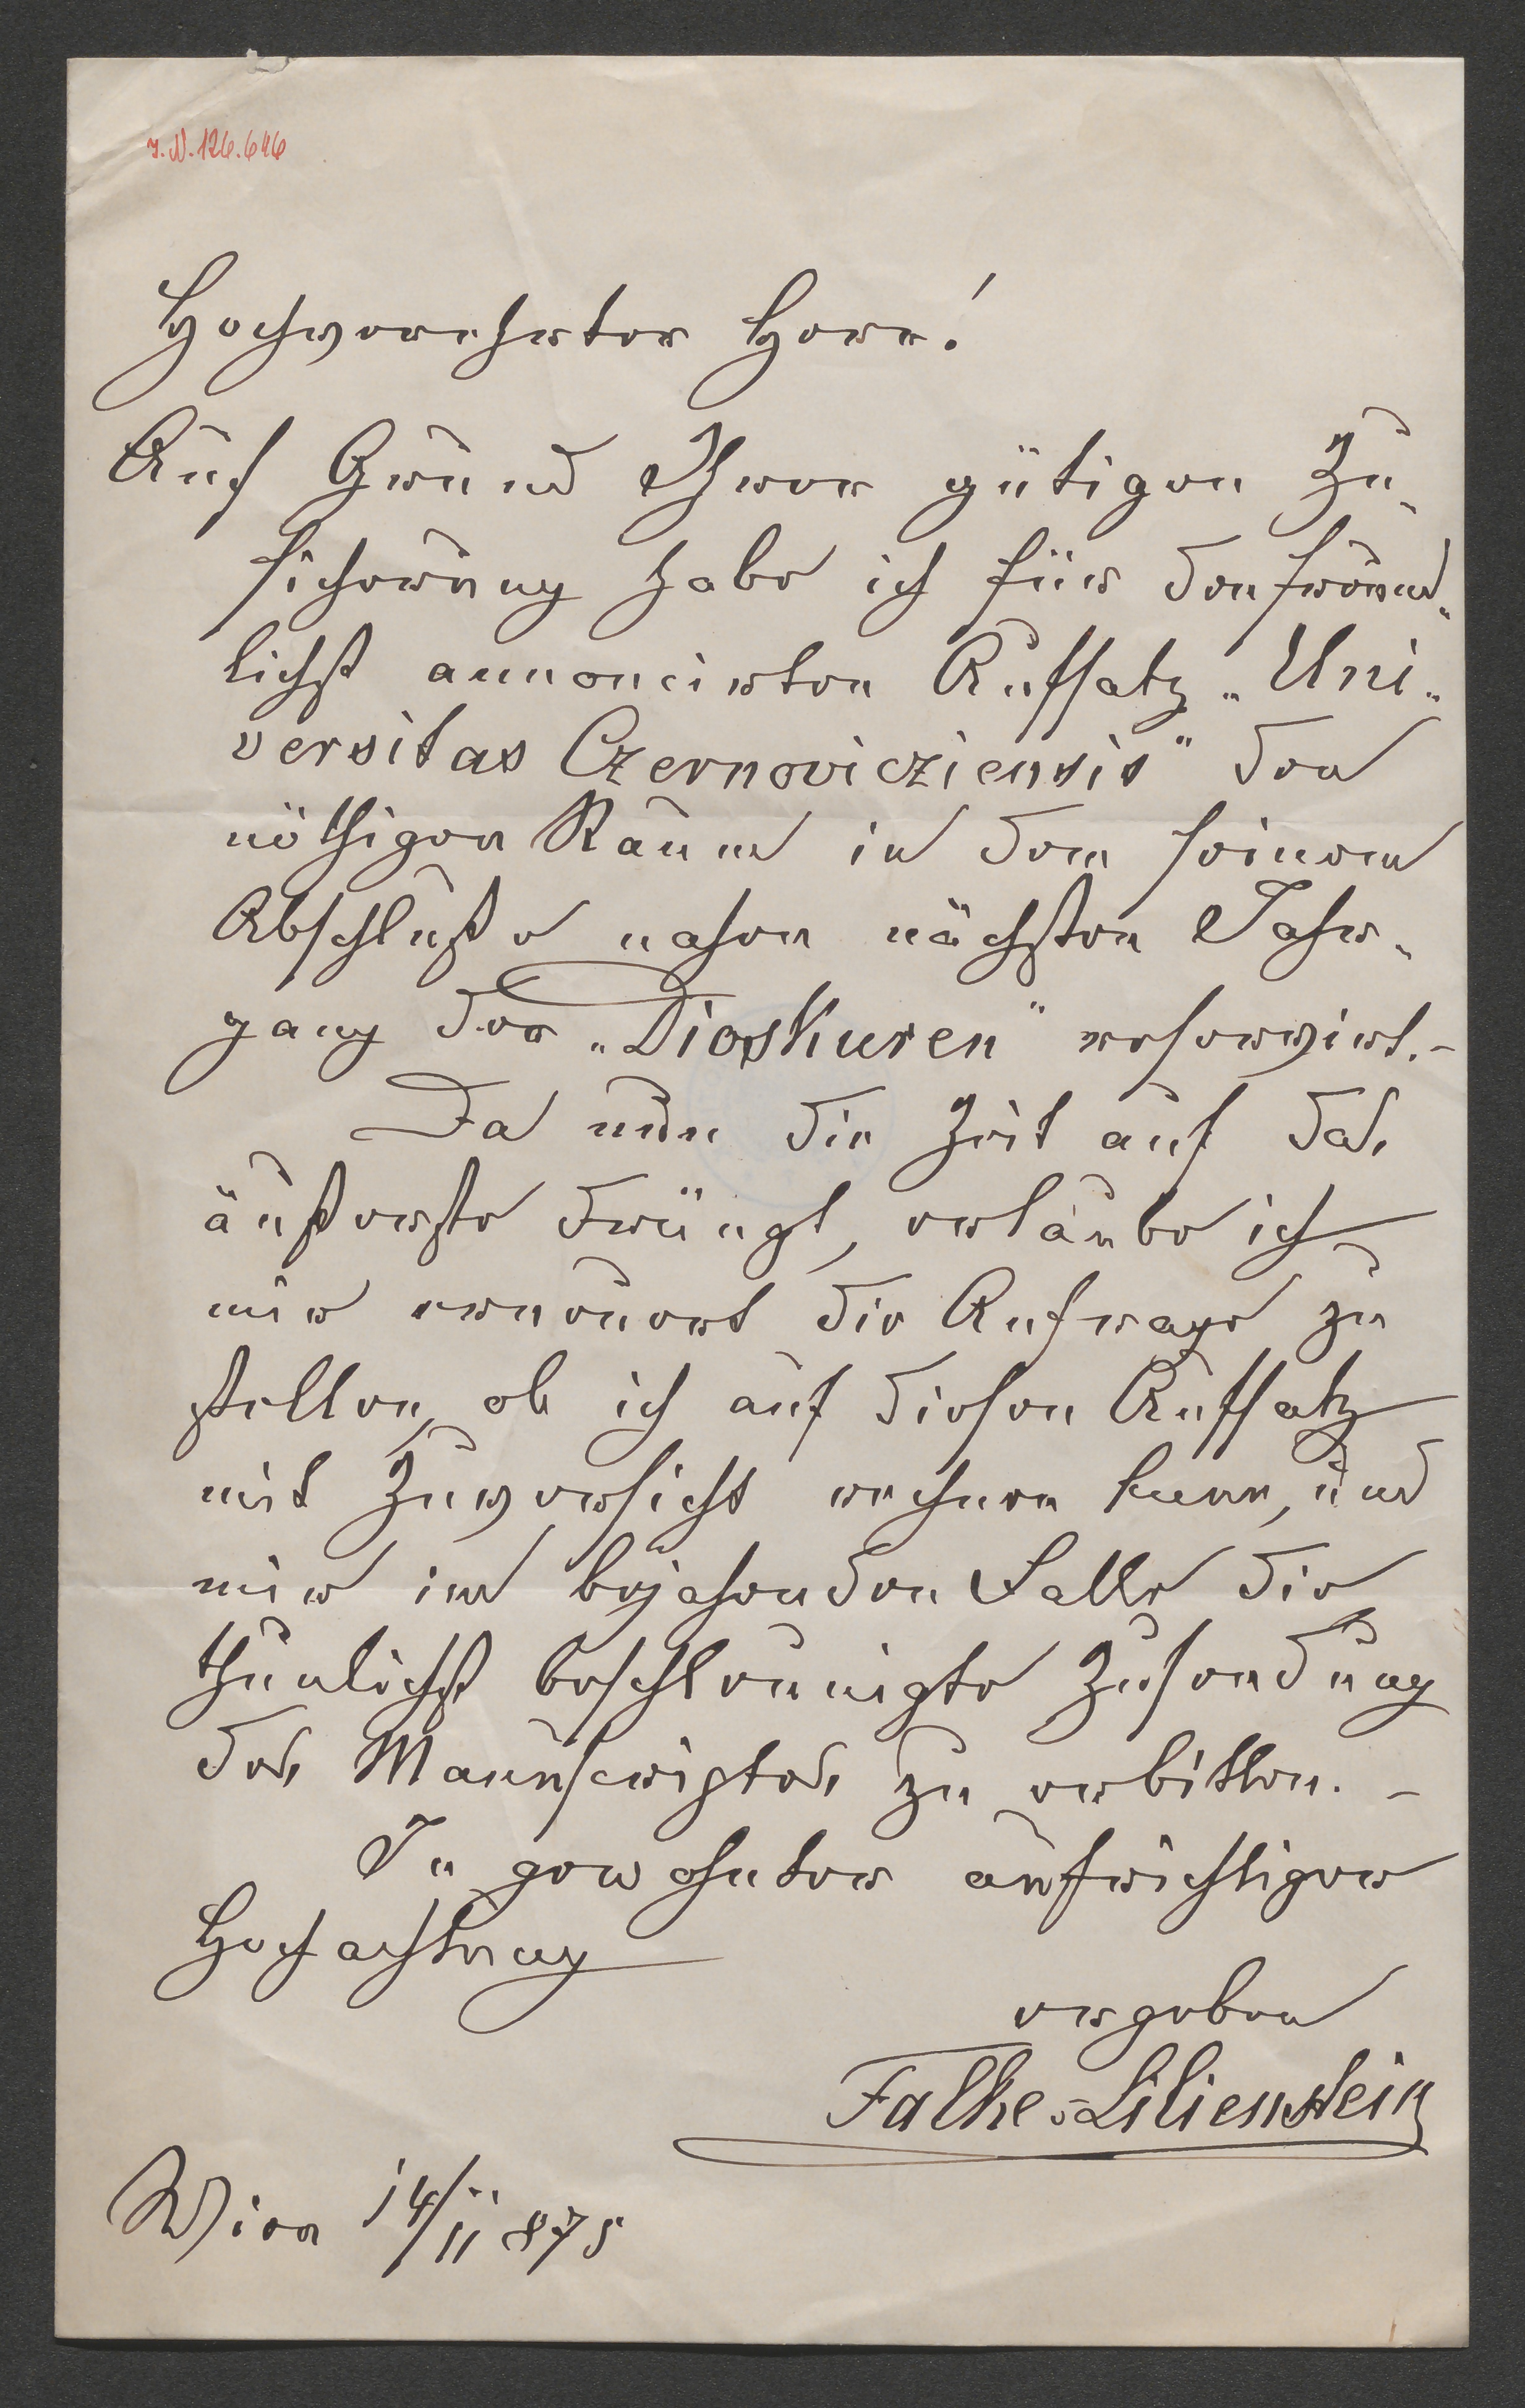 I.N. 126.646
Hochverehrter Herr!
Auf Grund Ihrer gütigen Zu-
sicherung habe ich für den freund-
lichst annoncirten Aufsatz „Uni-
versitas Czernovicziensis" den
nöthigen Raum in dem seinem
Abschluße nahen nächsten Jahr-
gang der „Dioskuren" reservirt.-
Da nun die Zeit auf das
äußerste drängt, erlaube ich
mir erneuert die Anfrage zu
stellen, ob ich auf diesen Aufsatz
mit Zuversicht rechnen kann, und
mir im bejahenden Falle die
thunlichst beschleunigte Zusendung
des Manuscriptes zu erbitten. -
In gewohnter aufrichtiger
Hochachtung
ergeben
Falke-Lilienstein
Wien 14/II 875